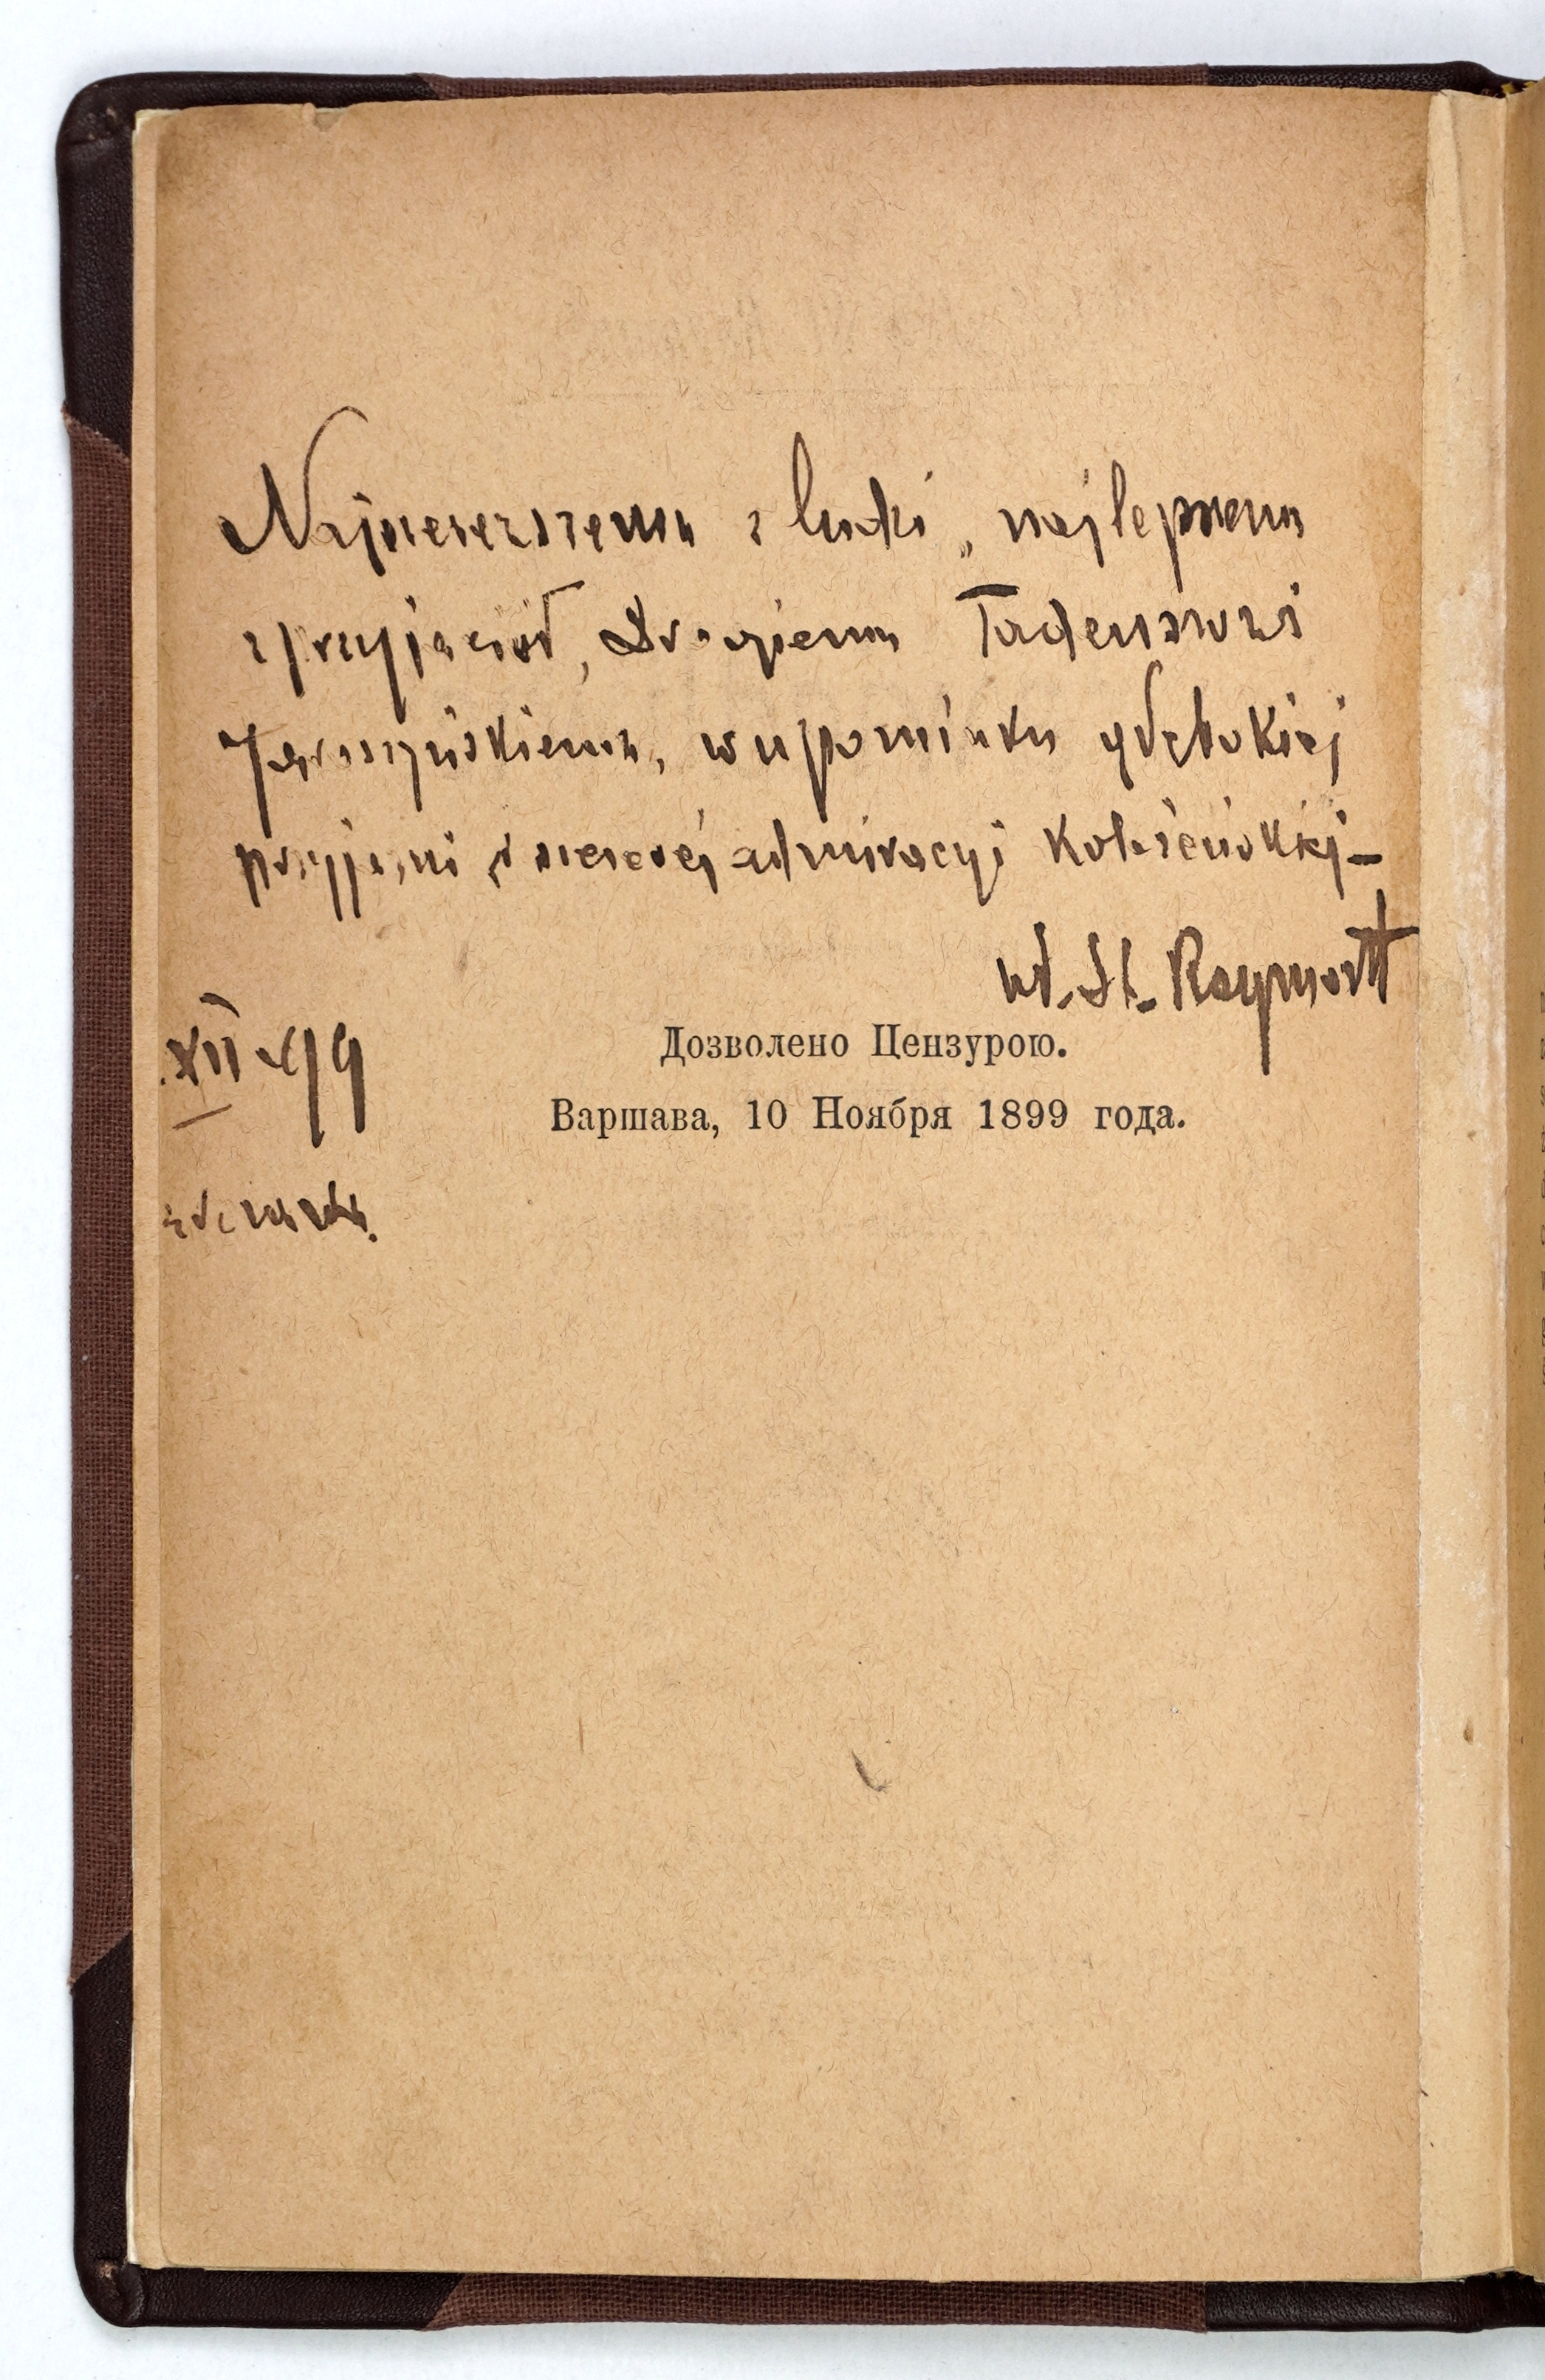 Najszczerszemu z ludzi, najlepszemu
z przyjaciół, Drogiemu Tadeuszowi
Jaroszyńskiemu, w upominku głębokiej
przyjaźni i szczerej admiracyi
Wł. St. Reymont
XII 99
Дозволено Цензурою.
Варшава, 10 Ноября 1899 года.